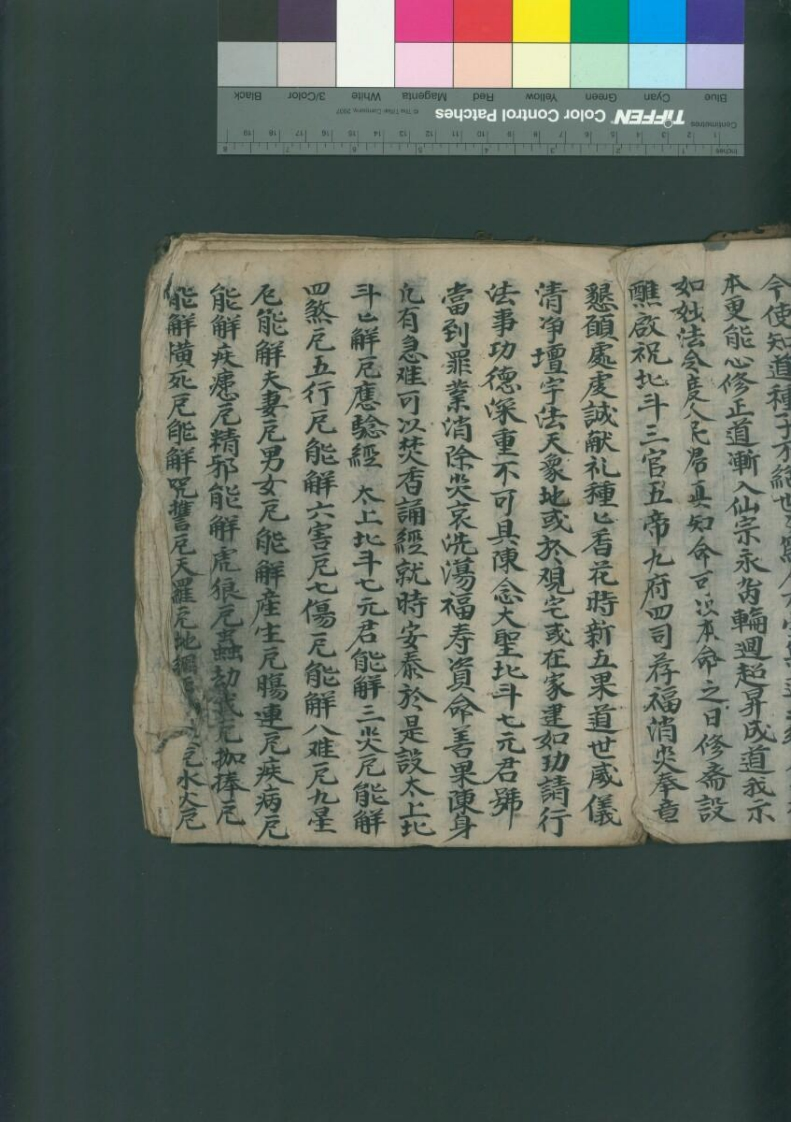 Blue Cyan Green Yellow Red Magenta White 3/Color Black
TIFFEN Color Control Patches © The Tiffen Company, 2007
Centimetres 1 2 3 4 5 6 7 8 9 10 11 12 13 14 15 16 17 18 19
Inches 1 2 3 4 5 6 7 8
今使知道種子不絕世
本更能心修正道漸入仙宗永離輪迴超昇成道我示
如妙法令度人民居真知命可以本命之日修齋設
醮啟祝北斗三官五帝九府四司荐福消灾奉章
懇願處虔誠献礼種〻香花時新五果道世威儀
清净壇宇法天象地或於觀宅或在家建如功請行
法事功德深重不可具陳念大聖北斗七元君號
當到罪業消除灾衰洗蕩福寿資命善果陳身
凡有急难可以焚香誦經就時安泰於是設太上北
斗七解厄應驗經 太上北斗七元君能解三灾厄能解
四煞厄五行厄能解六害厄七傷厄能解八难厄九星
厄能解夫妻厄男女厄能解産生厄腸連厄疾病厄
能解疾瘧厄精邪能解虎狼厄蟲劫賊厄枷捧厄
能解横死厄能解咒誓厄天羅厄地網 厄水火厄